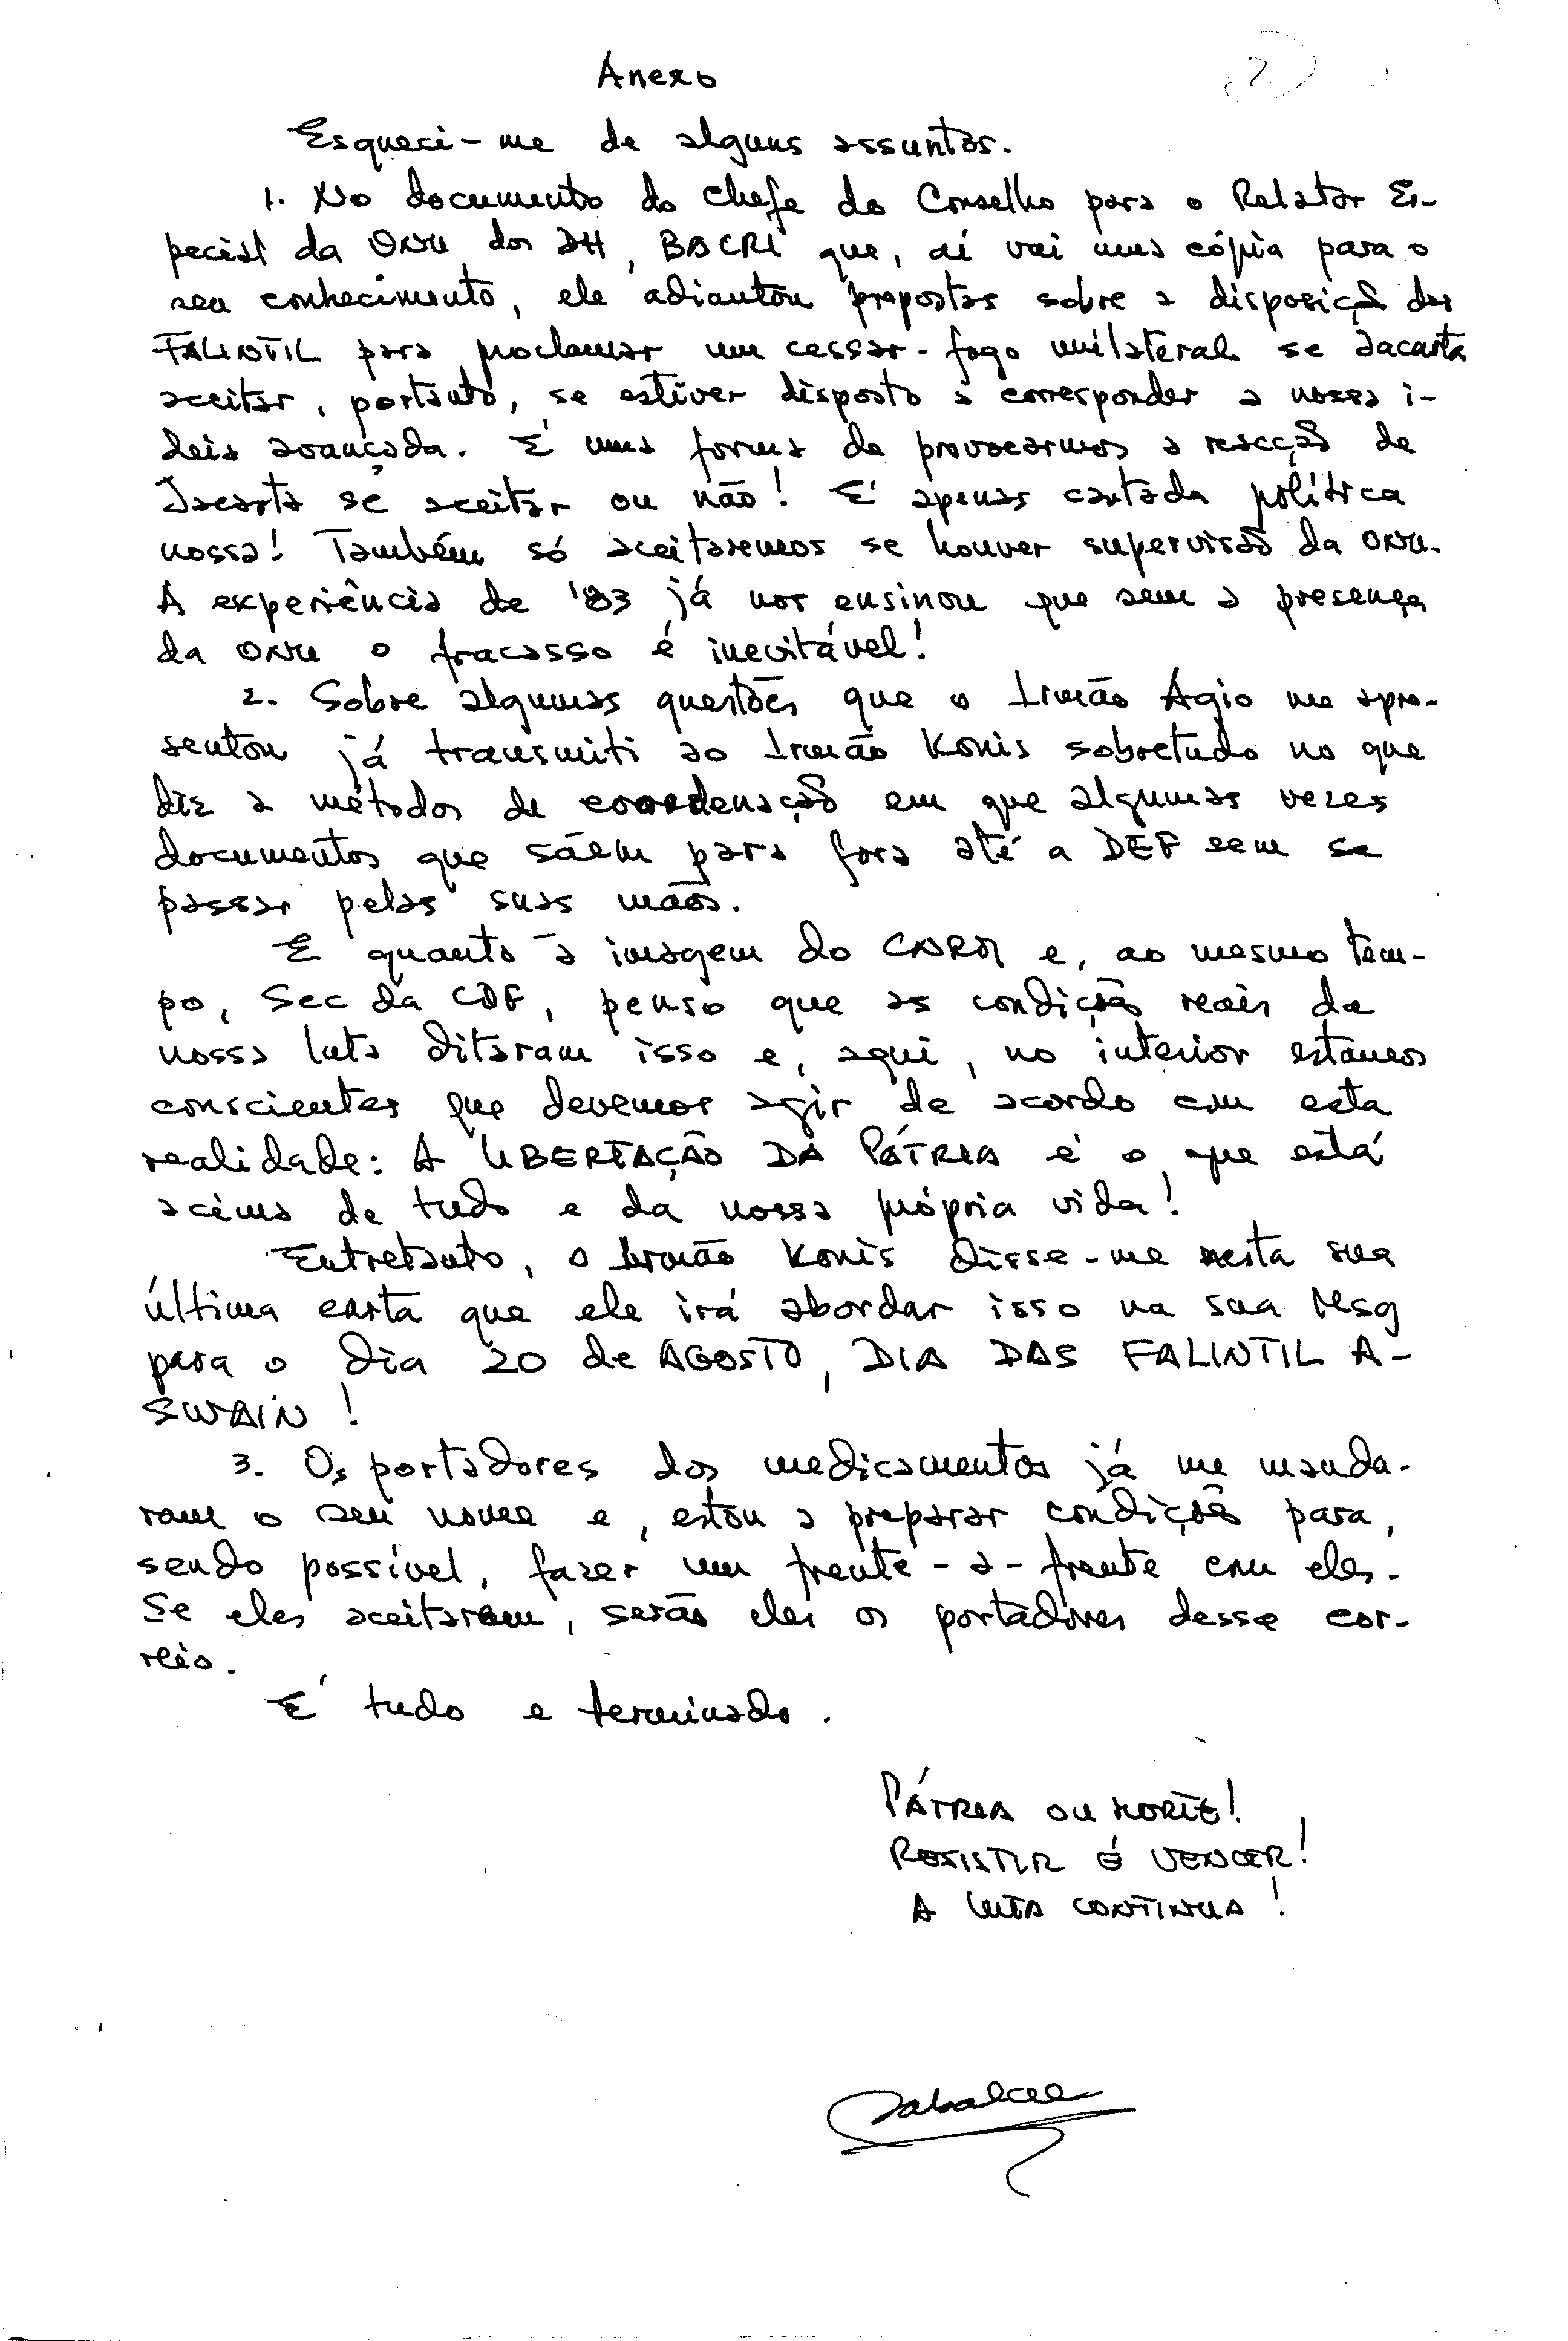 Anexo
2
Esqueci-me de alguns assuntos.
1. No documento do Chefe do Conselho para o Relator Es-
pecial da ONU dos DH, BACRE que, aí vai uma cópia para o
seu conhecimento, ele adiantou propostas sobre a disposição das
FALINTIL para proclamar um cessar-fogo unilateral se Jacarta
aceitar, portanto, se estiver disposto a corresponder a nossa i-
deia avançada. É uma forma de provocarmos a reacção de
Jacarta se aceitar ou não! É apenas cartada política
nossa! Também só aceitaremos se houver supervisão da ONU.
A experiência de '83 já nos ensinou que sem a presença
da ONU o fracasso é inevitável!
2. Sobre algumas questões que o Irmão Agio me apre-
sentou já transmiti ao Irmão Konis sobretudo no que
diz a métodos de coordenação em que algumas vezes
documentos que sáem para fora até a DEF sem se
passar pelas suas mãos.
E quanto à imagem do CNRM e, ao mesmo tem-
po, Sec da CDF, penso que as condições reais da
nossa luta ditaram isso e, aqui, no interior estamos
conscientes que devemos agir de acordo com esta
realidade: A LIBERTAÇÃO DA PÁTRIA é o que está
acima de tudo e da nossa própria vida!
Entretanto, o Irmão Konis disse-me nesta sua
última carta que ele irá abordar isso na sua Msg
para o dia 20 de AGOSTO, DIA DAS FALINTIL A-
SWAIN!
3. Os portadores dos medicamentos já me manda-
ram o seu nome e, estou a preparar condições para,
sendo possível, fazer um frente-a-frente com eles.
Se eles aceitarem, serão eles os portadores desse cor-
reio.
É tudo e terminado.
PÁTRIA OU MORTE!
RESISTIR É VENCER!
A LUTA CONTINUA!